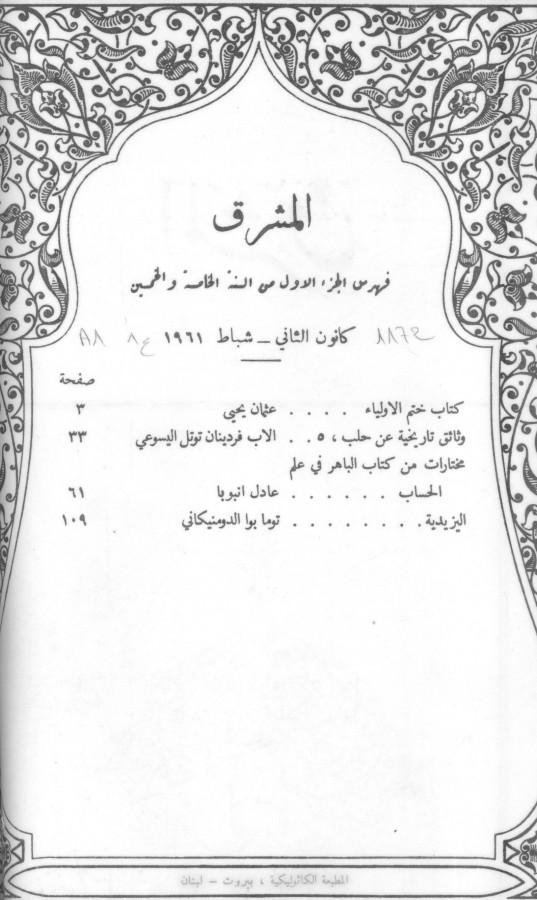 المشرق
فهرس الجزء الاول من السنة الخامسة والخمسين
كانون الثاني – شباط ١٩٦١
صفحة
كتاب ختم الاولياء . . . . عثمان يحيى ٣
وثائق تاريخية عن حلب ، ٥ . . الاب فردينان توتل اليسوعي ٣٣
مختارات من كتاب الباهر في علم
الحساب . . . . . . عادل انبوبا ٦١
اليزيدية . . . . . . . . توما بوا الدومنيكاني ١٠٩
المطبعة الكاثوليكية ، بيروت – لبنان